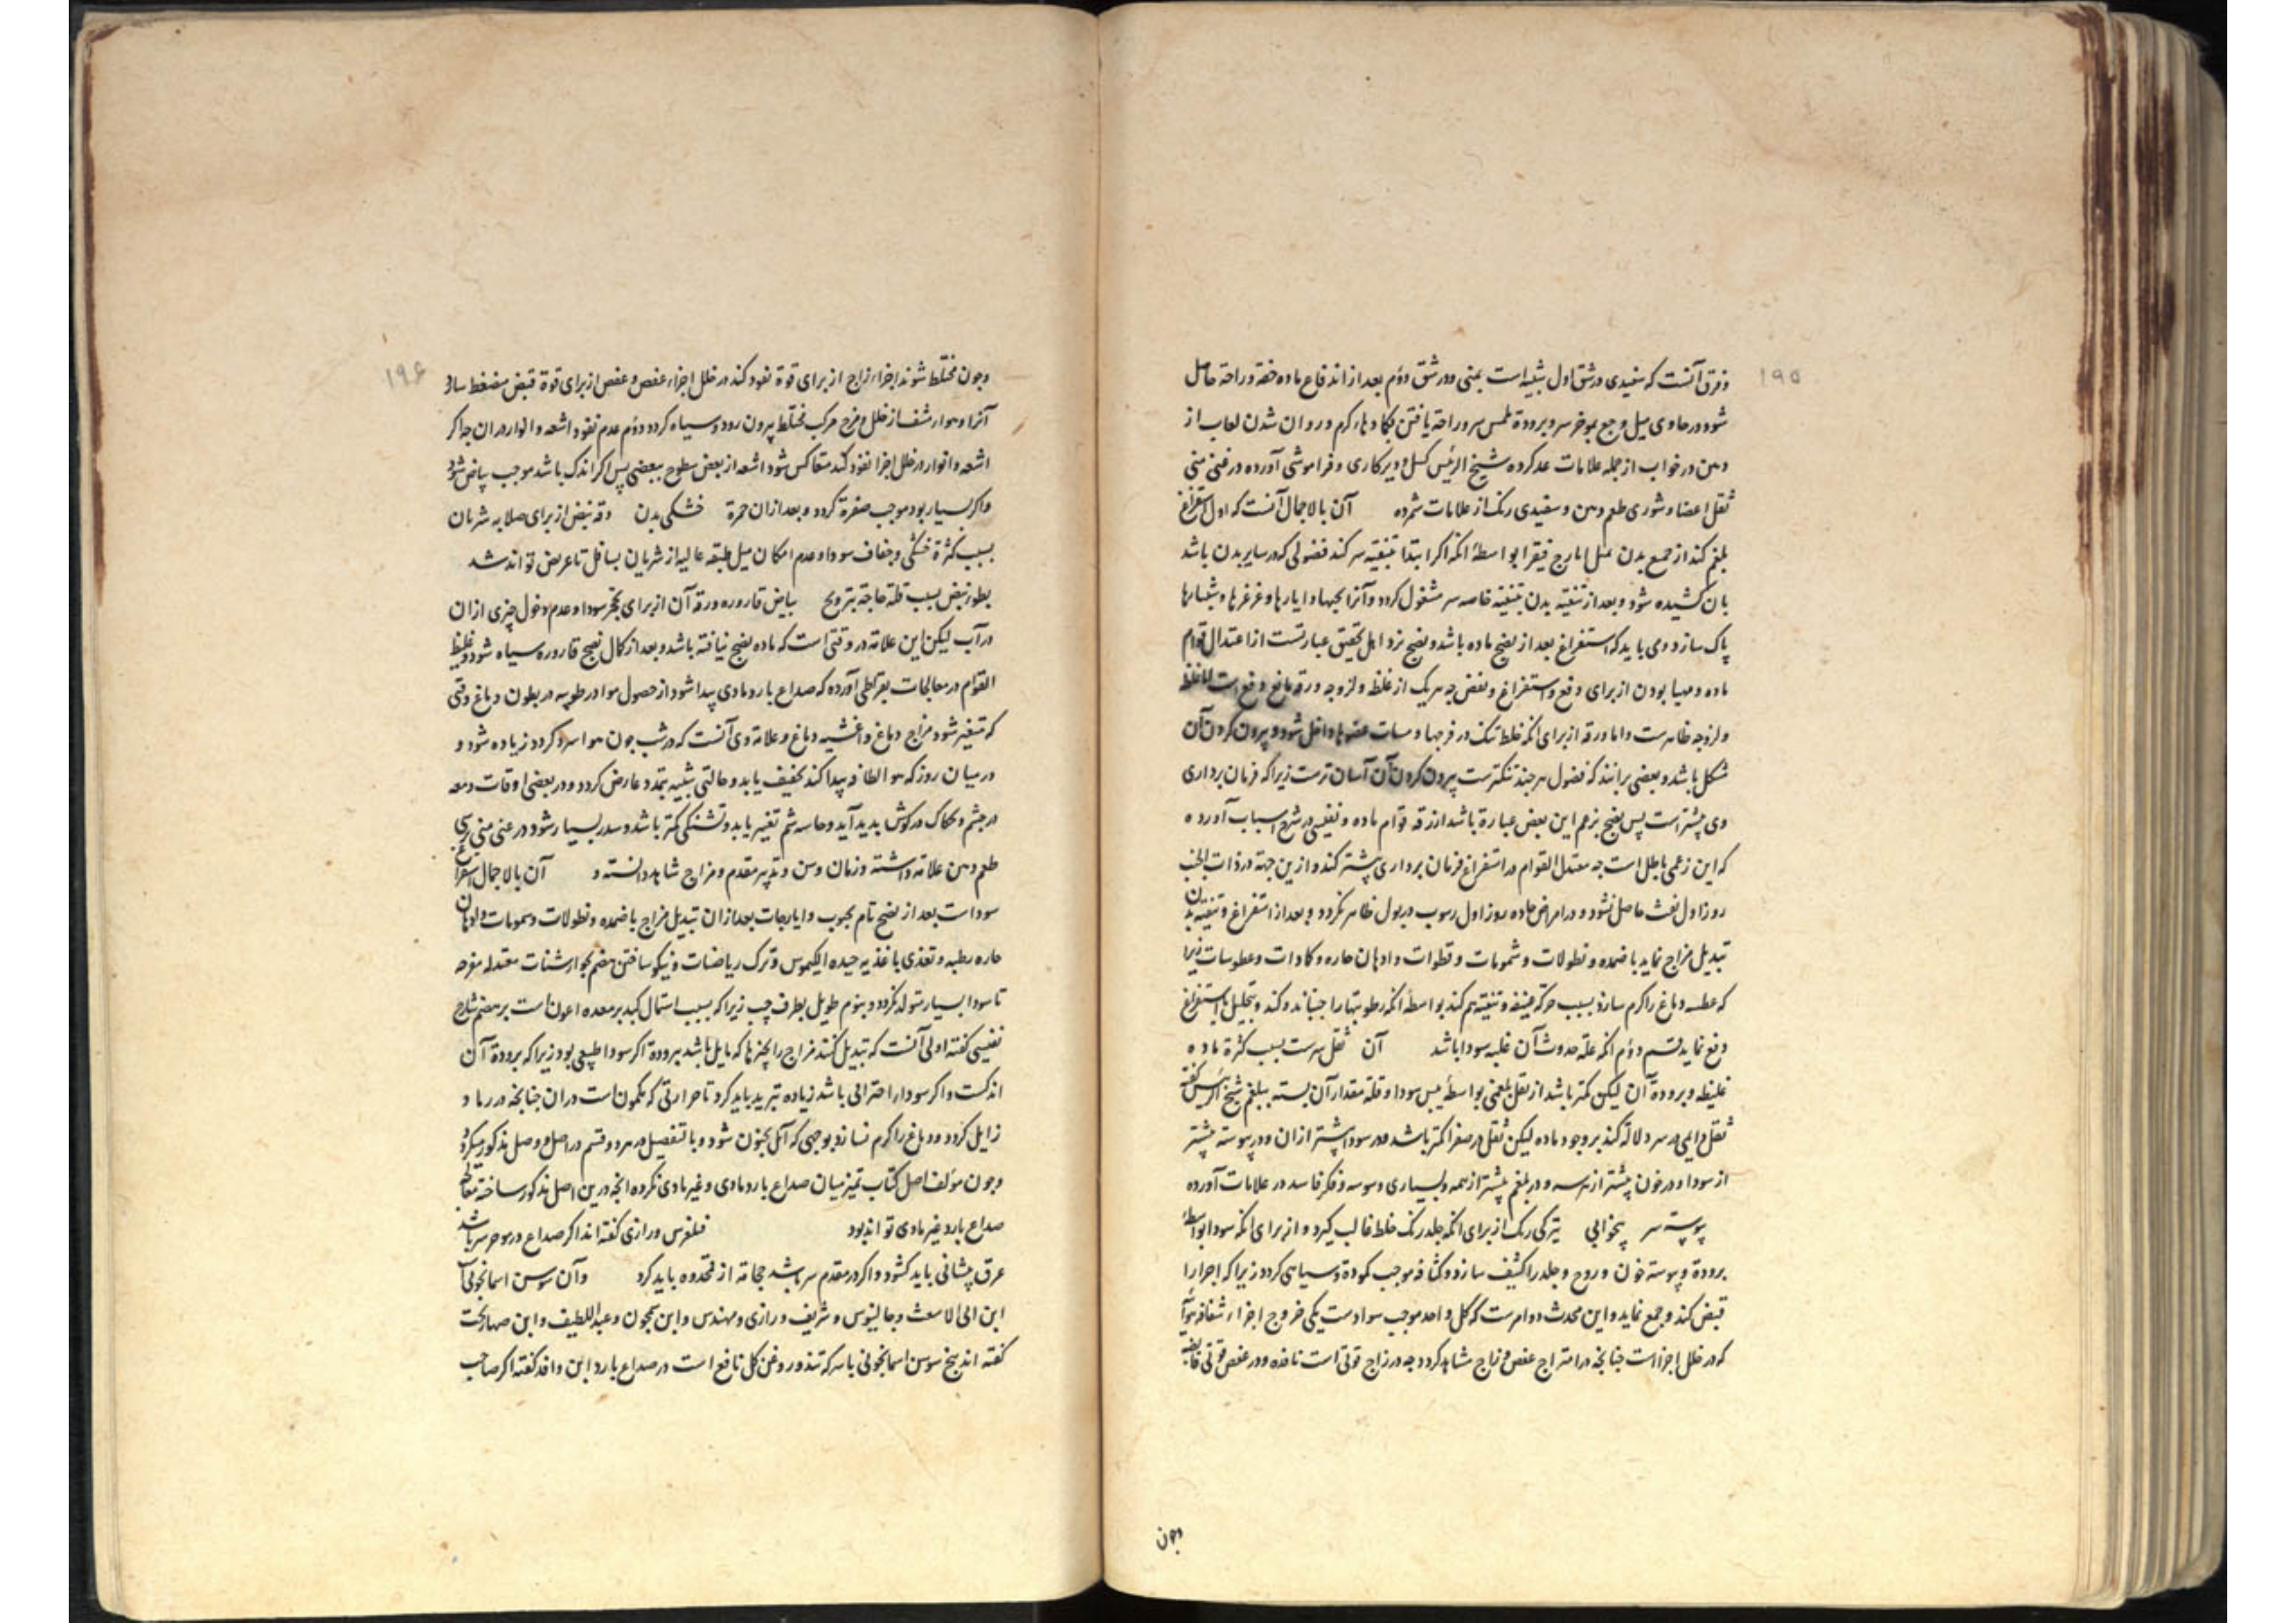 ۱۹۵
و فرق آنست که سفیدی در شق اول شبیه است بمنی و در شق دوم بعد از اندفاع ماده خفة و راحة حاصل
شود در حاوی میل وجع بموخر سر و برودة ملمس سر و راحة یافتن بکمادهاء کرم و روان شدن لعاب از
دهن در خواب از جمله علامات عد کرده شیخ الرئیس کسل و دیرکاری و فراموشی آورده در غنی منی
ثقل اعضا و شوری طعم دهن و سفیدی رنک از علامات شمرده آن بالاجمال آنست که اول استفراغ
بلغم کند از جمیع بدن بمثل ایارج فیقرا بواسطهٔ انکه اکر ابتدا بتنقیه سر کند فضولی که در سایر بدن باشد
بان کشیده شود و بعد از تنقیه بدن بتنقیه خاصه سر مشغول کردد و آنرا بحبها و ایارها و غرغرها و شبیارها
پاک سازد و می باید که استفراغ بعد از نضج ماده باشد و نضج نزد اهل تحقیق عبارتست از اعتدال قوام
ماده و مهیا بودن از برای دفع و استفراغ و نقض چه هریک از غلظ و لزوجه و رقه مانع دفع است اما غلظ
و لزوجه ظاهرست و اما رقه از برای انکه خلط تنک در فرجها و مسات عضوها داخل شود و بیرون کردن آن
مشکل باشد و بعضی برانند که فضول هرچند تنکترست بیرون کردن آن آسان ترست زیرا که فرمان برداری
وی بیشترست پس نضج بزعم این بعض عبارة باشد از رقه قوام ماده و نفیسی در شرح اسباب آورده
که این زعمی باطل است چه معتدل القوام در استفراغ فرمان برداری بیشتر کند و ازین جهة در ذات الجنب
روز اول نفث حاصل نشود و در امراض حاده روز اول رسوب در بول ظاهر نکردد و بعد از استفراغ و تنقیه بدن
تبدیل مزاج نماید باضمده و نطولات و شمومات و قطورات و ادهان حاره و کمادات و عطوسات زیرا
که عطسه دماغ را کرم سازد بسبب حرکة عنیفه و تنقیه هم کند بواسطهٔ انکه رطوبتها را جنباند و کند و بتحلیل یا باستفراغ
دفع نماید قسم دوم انکه علة حدوث آن غلبه سودا باشد آن ثقل سرست بسبب کثرة ماده
غلیظه و برودة آن لیکن کمتر باشد از ثقل بلغمی بواسطهٔ یبس سودا و قلة مقدار آن نسبته ببلغم شیخ الرئیس کفته
ثقل دایمی در سر دلالة کند بر وجود ماده لیکن ثقل در صفرا کمتر باشد و در سودا بیشتر ازان و در پیوسته بیشتر
از سودا و در خون بیشتر از هرسه و در بلغم بیشتر از همه و بسیاری وسوسه و فکر فاسد در علامات آورده
پیوسته سر بیخوابی تیرکی رنک از برای انکه جلد رنک خلط غالب کیرد و از برای انکه سودا بواسطهٔ
برودة و یبوسته خون و روح و جلد را کثیف سازد و کثافه موجب کمودة و سیاهی کردد زیرا که اجزا را
قبض کند و جمع نماید و این محدث دو امرست که کل واحد موجب سوادست یکی خروج اجزاء شفافه هوائیه
که در خلل اجزا است چنانچه در امتزاج عفص و زاج مشاهد کردد چه در زاج قوتی است نافذه و در عفص قوتی قابضه
چون
۱۹۶
و چون مختلط شوند اجزاء زاج از برای قوة نفود کند در خلل اجزاء عفص و عفص از برای قوة قبض منضغط سازد
آنرا و هواء شفاف از خلل و فرج مرکب مختلط بیرون رود و سیاه کردد دوم عدم نفود اشعه و انوار دران چه اکر
اشعه و انوار در خلل اجزا نفود کند متعاکس شود اشعه از بعض سطوح ببعضی پس اکر اندک باشد موجب بیاض شود
و اکر بسیار بود موجب صفرة کردد و بعد ازان حمرة خشکی بدن دقه نبض از برای صلابه شریان
بسبب کثرة خشکی و جفاف سودا و عدم امکان میل طبقه عالیه از شریان بسافل تا عریض تواند شد
بطوء نبض بسبب قلة حاجة بترویح بیاض قاروره و رقة آن از برای تحجر سودا و عدم دخول چیزی ازان
در آب لیکن این علامة در وقتی است که ماده نضج نیافته باشد و بعد از کمال نضج قاروره سیاه شود و غلیظ
القوام در معالجات بقراطی آورده که صداع بارد مادی پیدا شود از حصول مواد رطوبیه در بطون دماغ وقتی
که متغیر شود مزاج دماغ و اغشیه دماغ و علامة وی آنست که در شب چون هوا سرد کردد زیاده شود و
در میان روز که هوا لطافه پیدا کند تخفیف یابد و حالتی شبیه بتمدد عارض کردد و در بعضی اوقات دمعه
در چشم و حکاک در کوش پدید آید و حاسه شم تغییر یابد و تشنکی کمتر باشد و سدر بسیار شود در غنی منی ترشی
طعم دهن علامة داشته و زمان و سن و تدبیر مقدم و مزاج شاهد دانسته و آن بالاجمال استفراغ
سودا است بعد از نضج تام بحبوب و ایارجات بعد ازان تبدیل مزاج باضمده و نطولات و شمومات و ادهان
حاره رطبه و تغذی باغذیه جیده الکیموس و ترک ریاضات و نیکو ساختن هضم بجوارشنات معتدله مفرحه
تا سودا بسیار متولد نکردد و بنوم طویل بطرف چپ زیرا که بسبب اشتمال کبد بر معده اعون است بر هضم شارح
نفیسی کفته اولی آنست که تبدیل کنند مزاج را بچیزها که مایل باشد ببرودة اکر سودا طبیعی بود زیرا که برودة آن
اندکست و اکر سودا را احتراقی باشد زیاده تبرید باید کرد تا حرارتی که مکمون است دران چنانچه در رماد
زایل کردد و دماغ را کرم نسازد بوجهی که آئل بجنون شود و با تفصیل در هر دو قسم در اصل و وصل مذکور میکردد
و چون مؤلف اصل کتاب تمیز میان صداع بارد مادی و غیر مادی نکرده انچه درین اصل مذکور ساخته معالج
صداع بارد غیر مادی تواند بود فیلغرس و رازی کفته اند اکر صداع در موخر سر باشد
عرق پیشانی باید کشود و اکر در مقدم سر باشد حجامة از قمحدوه باید کرد و آن سوسن اسمانجونی
ابن ابی الاشعث و جالینوس و شریف و رازی و مهندس و ابن سمجون و عبداللطیف و ابن صهاربخت
کفته اند بیخ سوسن اسمانجونی با سرکه تند و روغن کل نافع است در صداع بارد ابن وافد کفته اکر صاحب